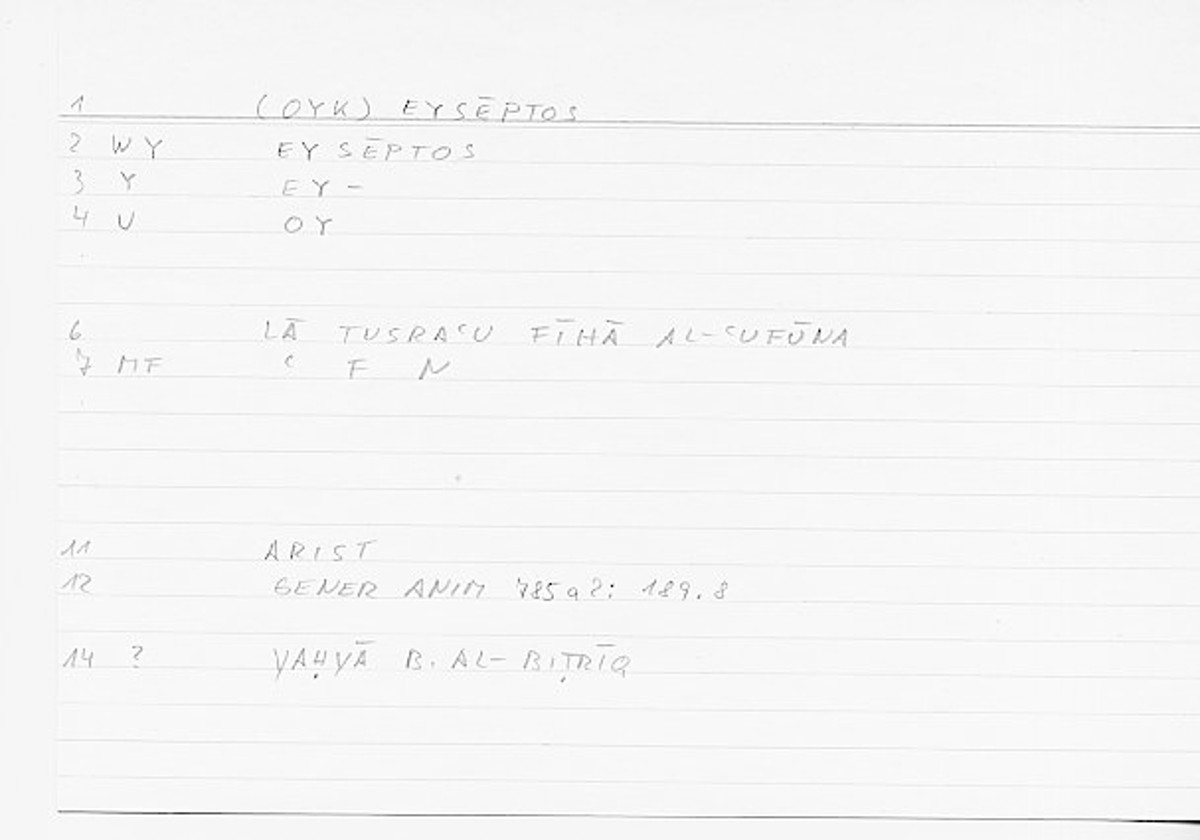 1 (OYK) EYSĒPTOS
2 WY EYSĒPTOS
3 Y EY-
4 U OY
6 LĀ TUSRAʿU FĪHĀ AL-ʿUFŪNA
7 MF ʿ F N
11 ARIST
12 GENER ANIM 785a2: 189.8
14 ? YAḤYĀ B. AL-BIṬRĪQ